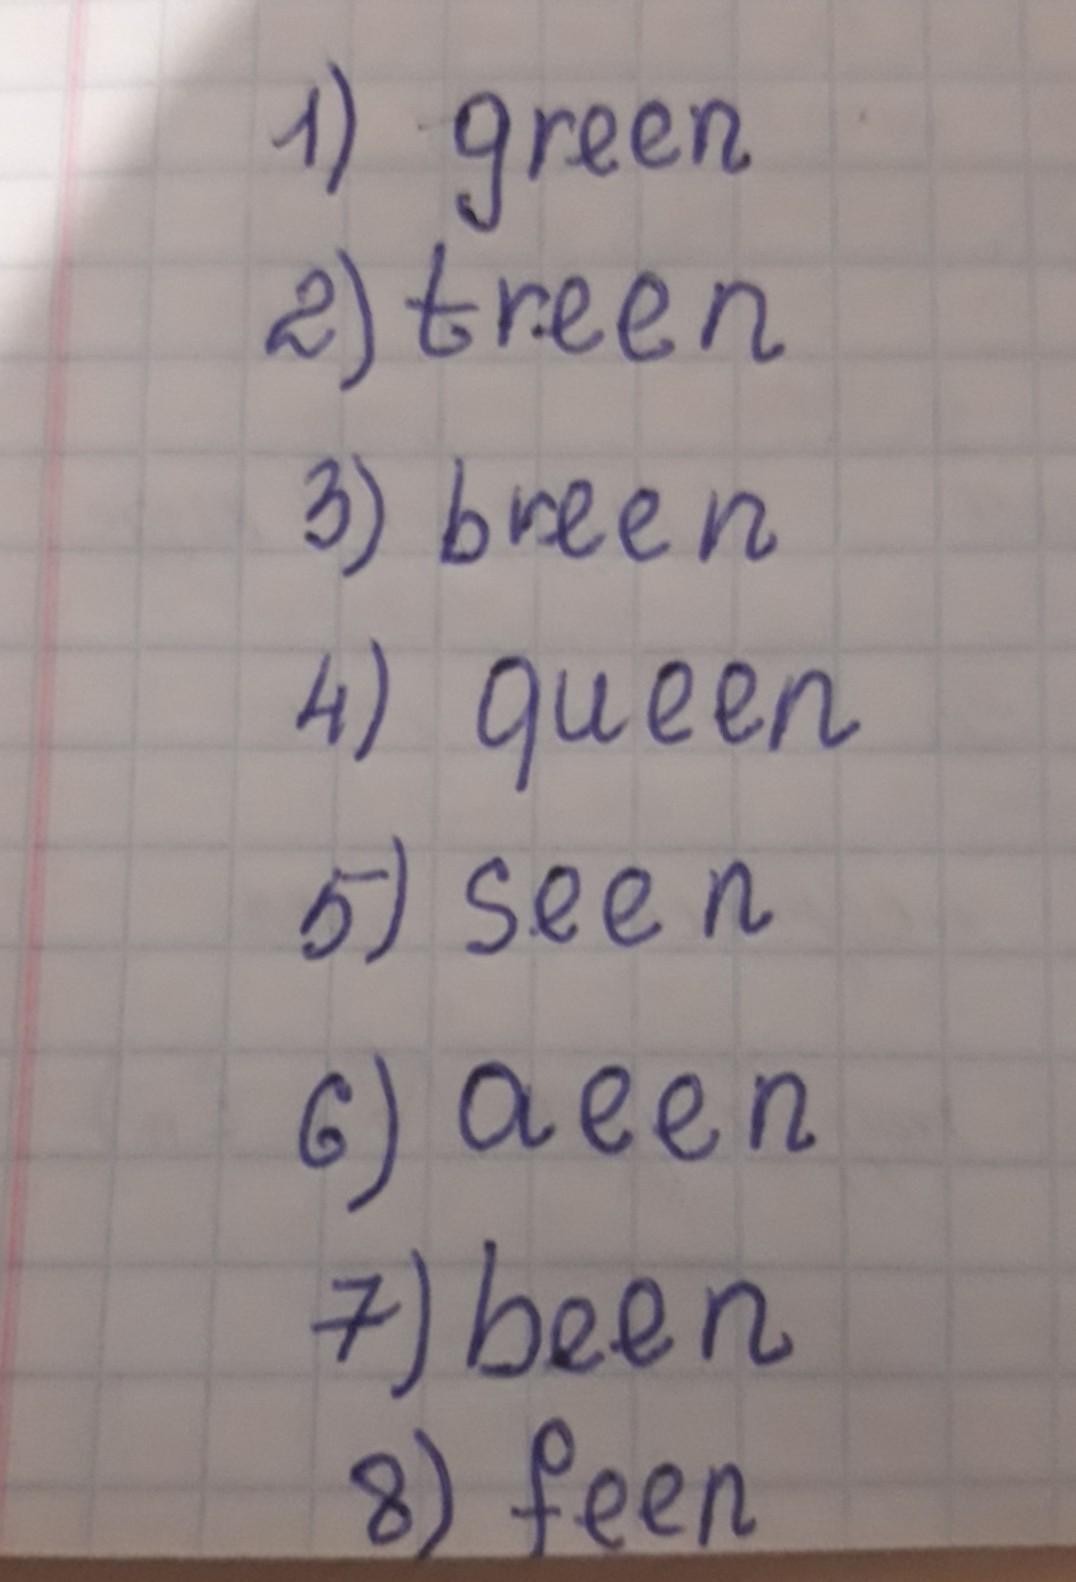 1) green
2) treen
3) breen
4) queen
5) seen
6) aeen
7) been
8) feen